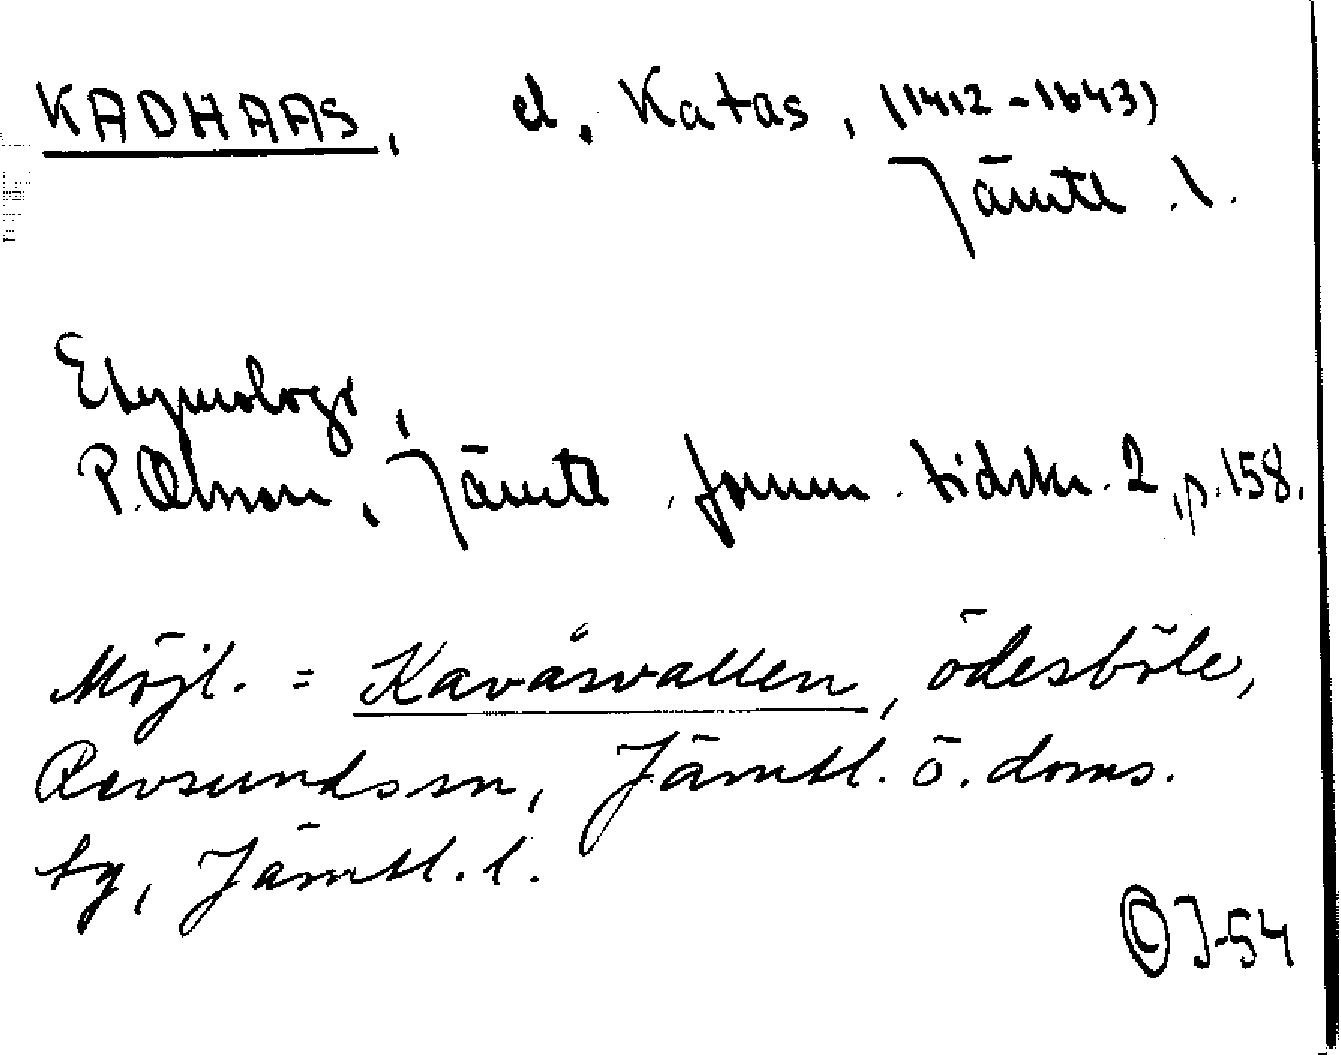 KADHAAS, el. Katas, (1412-1643)
Jämtl. l.
Etymologi,
P. Olsson, Jämtl. fornm. tidskr. 2, p. 158.
Möjl. = Kavåsvallen, ödesböle,
Revsundssn, Jämtl. ö. doms.
tg, Jämtl. l.
© J-54